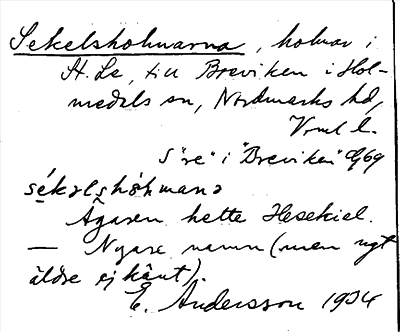 Sekelsholmarna, holmar i
St. Le, till Breviken i Hol-
medals sn, Nordmarks hd,
Vrml l.
S "re" i "Breviken" Gj69
sékəlshòḷmana
Ägaren hette Hesekiel.
— Nyare namn (men ngt
äldre ej känt).
E. Andersson 1934